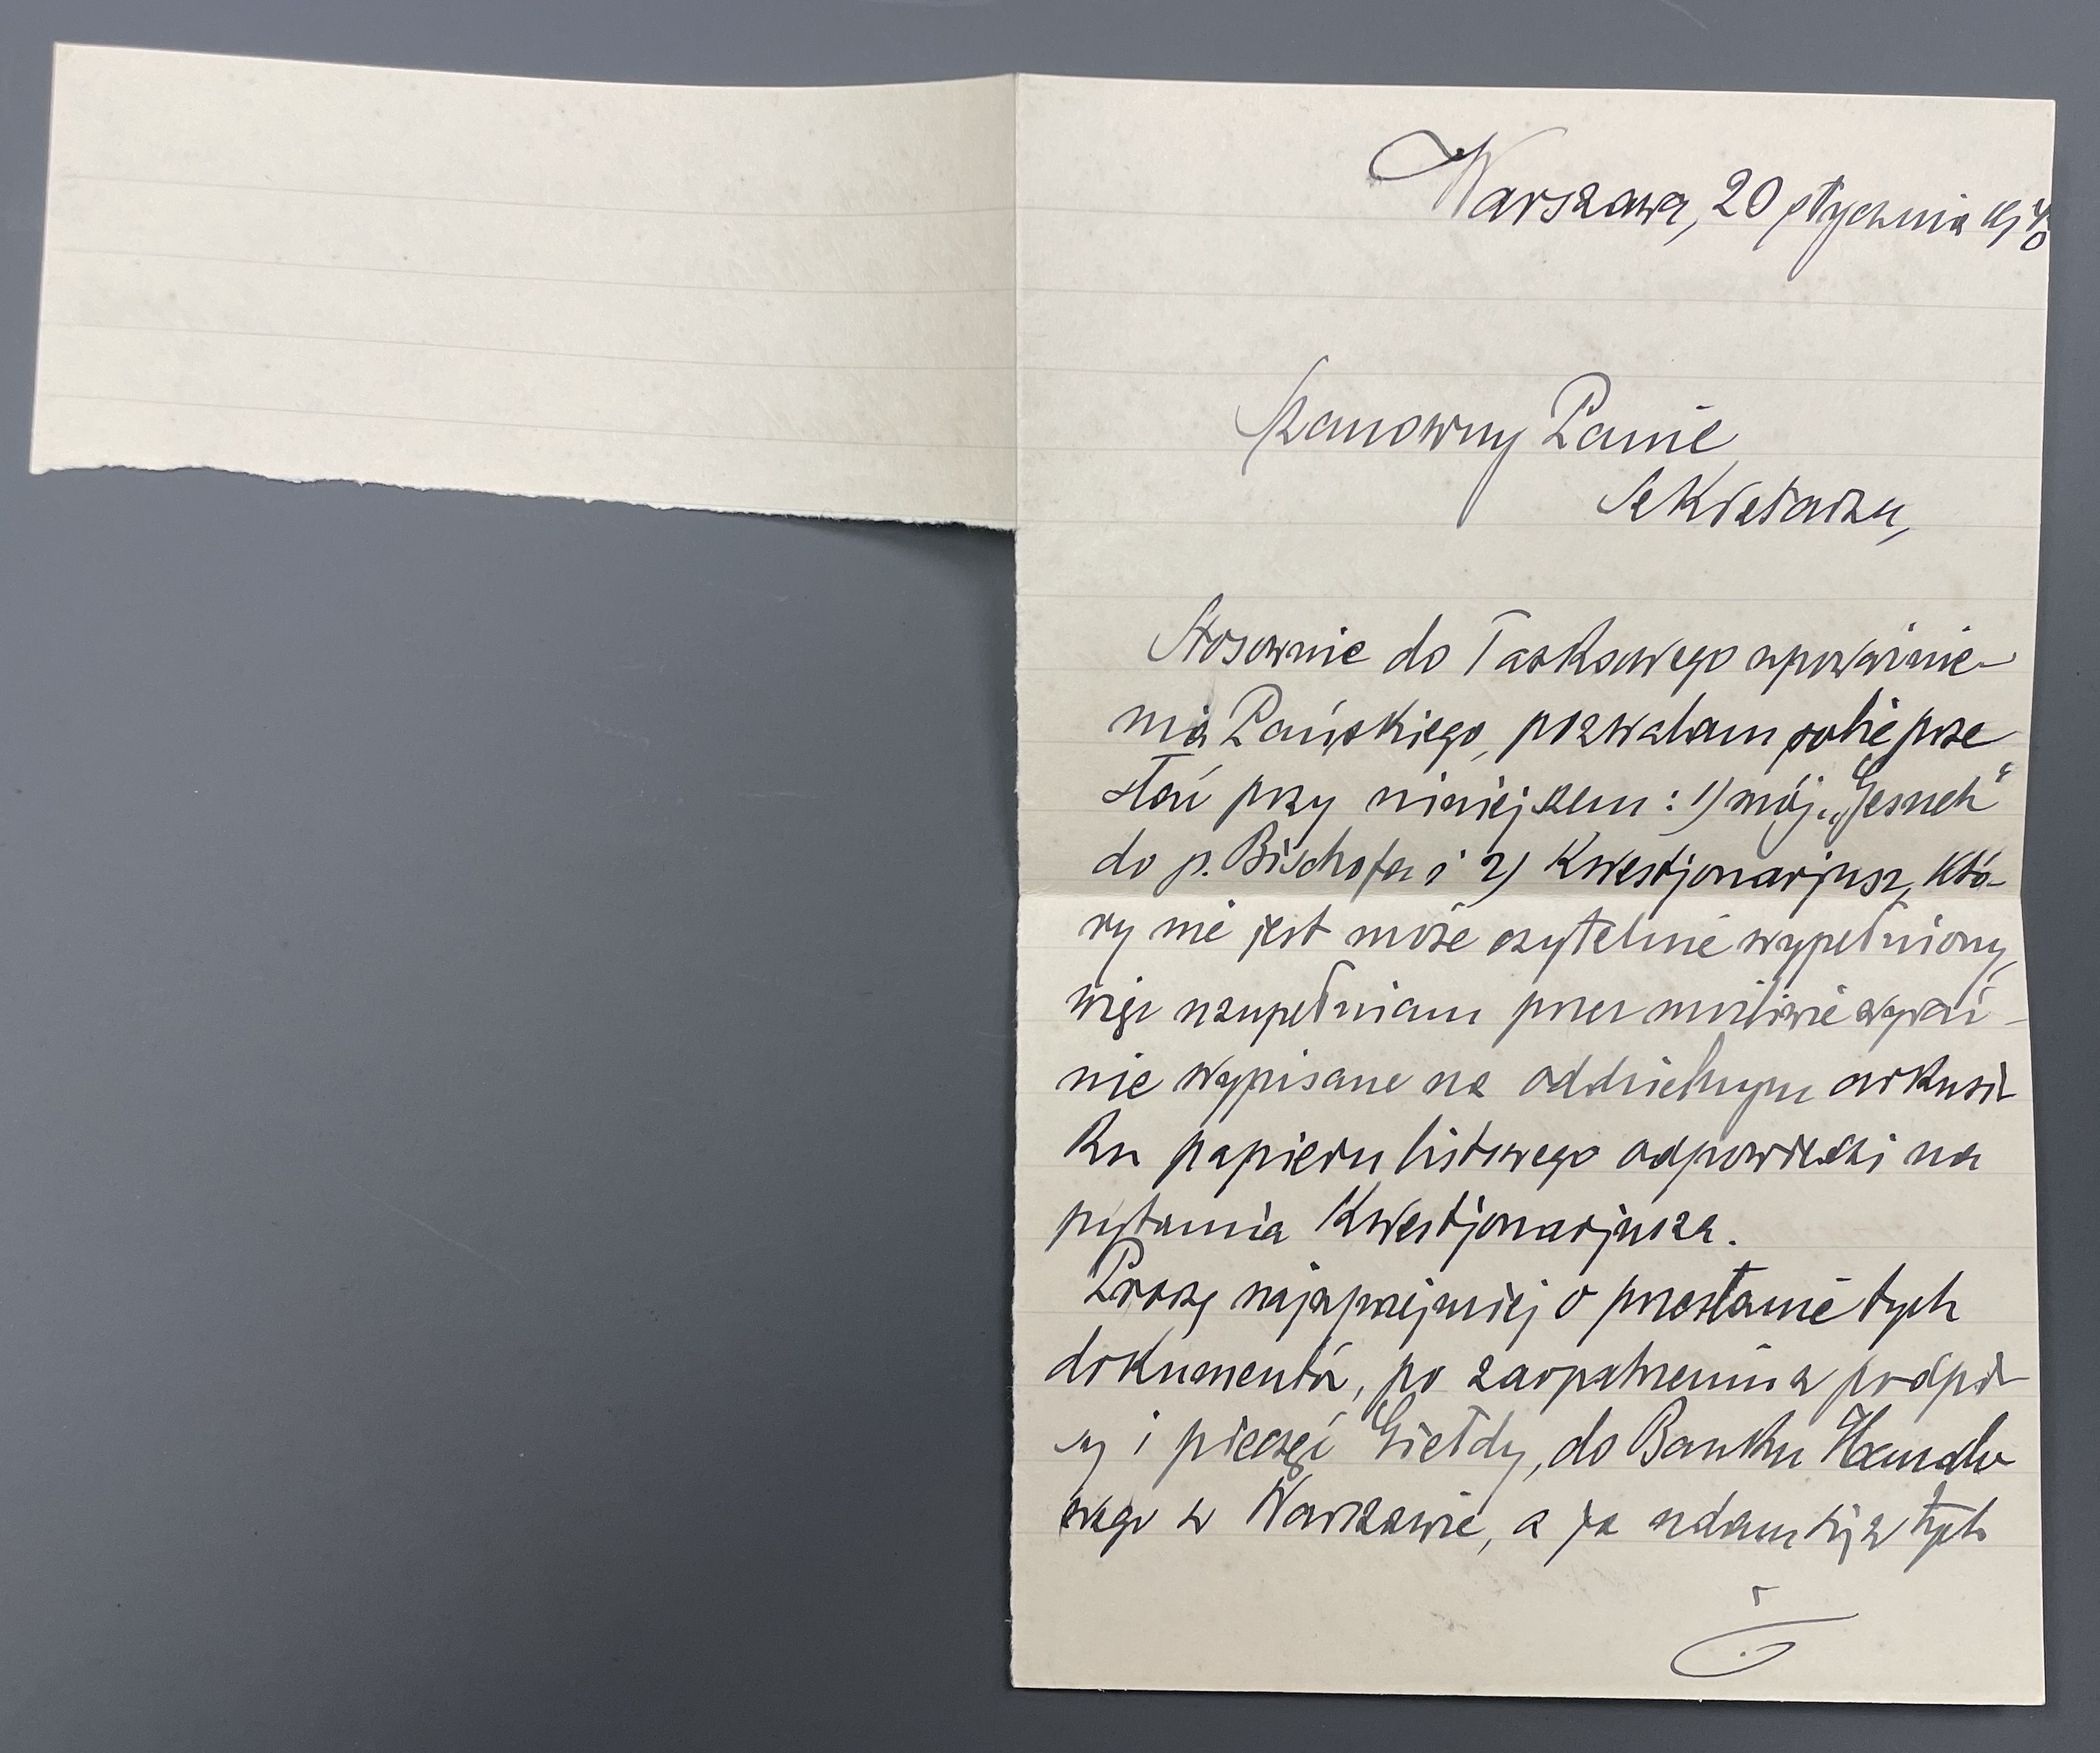 Warszawa, 20 stycznia 1940
Szanowny Panie
Sekretarzu,
Stosownie do łaskawego upoważnie-
nia Pańskiego, pozwalam sobie prze
słać przy niniejszem: 1) mój „Gesuch"
do p. Bischofa i 2) Kwestjonarjusz, któ-
ry nie jest może czytelnie wypełniony,
więc uzupełniam przez możliwie wyraź-
nie wypisane na oddzielnym arkusi-
ku papieru listowego odpowiedzi na
pytania Kwestjonarjusza.
Proszę najuprzejmiej o przesłanie tych
dokumentów, po zaopatrzeniu w podpi-
sy i pieczęć Giełdy, do Banku Handlo
wego w Warszawie, a ja udam się z tych